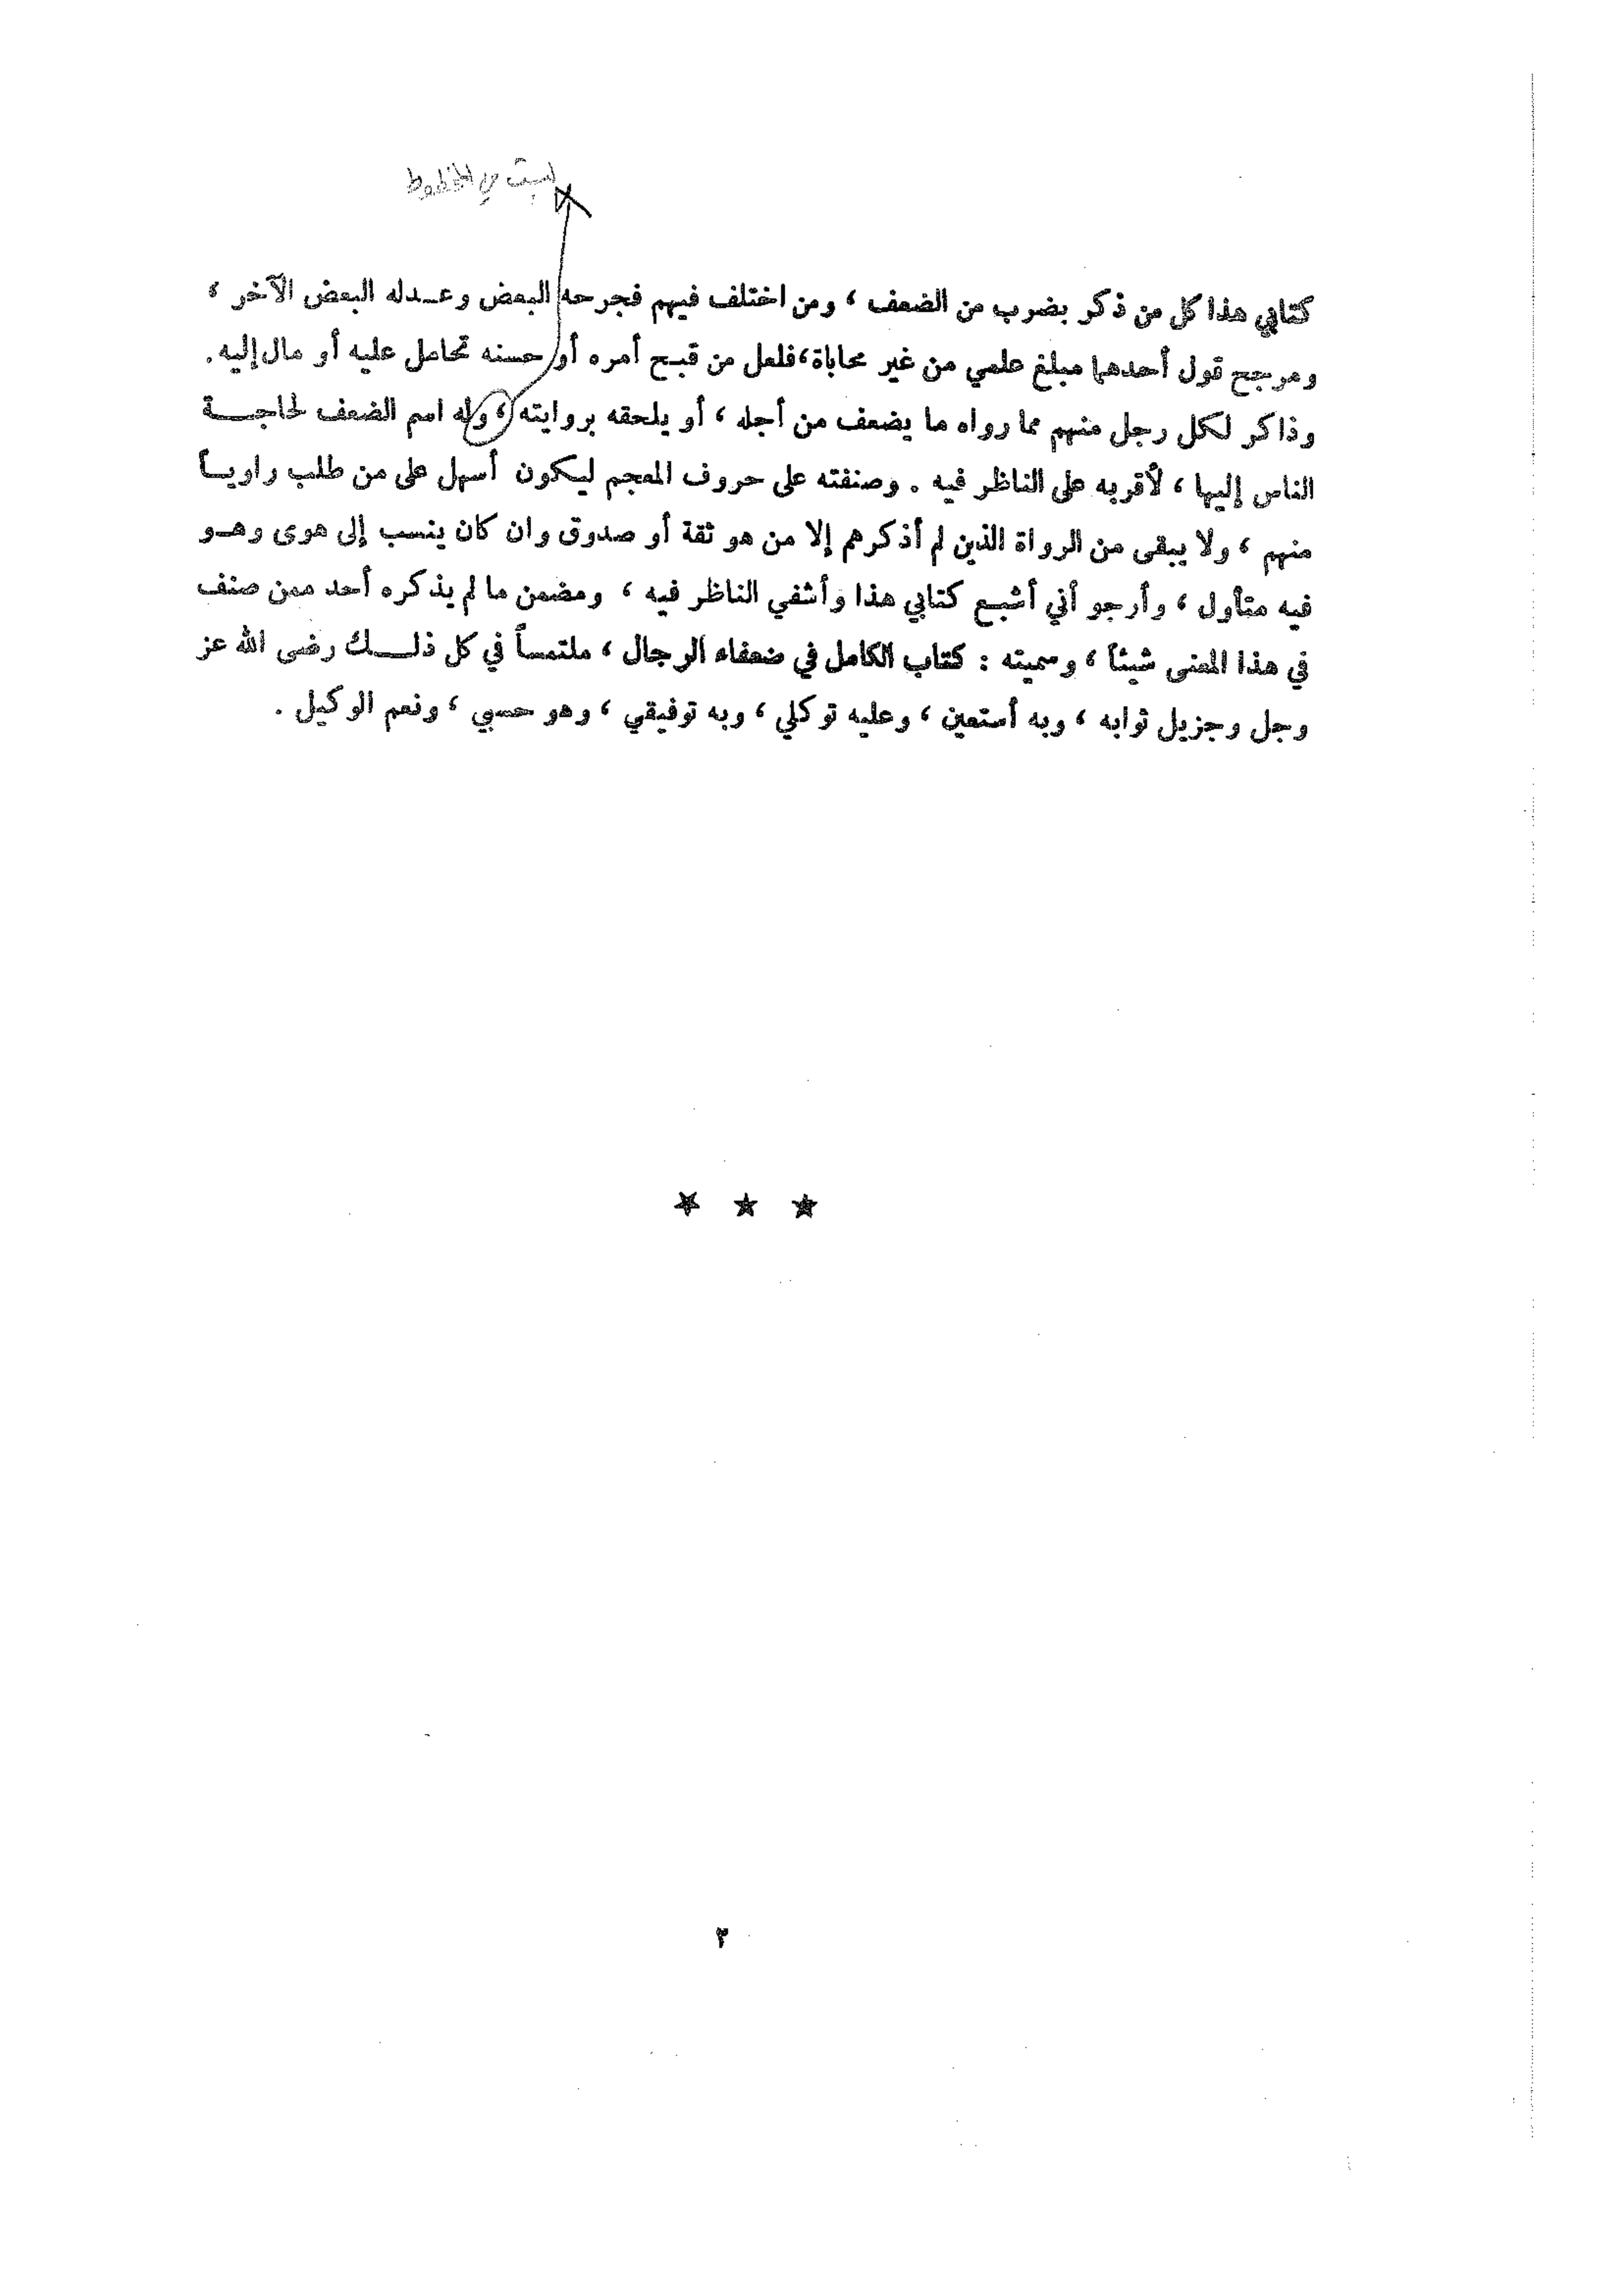 ليست في المخطوط
كتابي هذا كل من ذكر بضرب من الضعف ، ومن اختلف فيهم فجرحه البعض وعـدله البعض الآخر ،
ومرجح قول أحدهما مبلغ علمي من غير محاباة،فلعل من قبح أمره أو حسنه تحامل عليه أو مال إليه.
وذاكر لكل رجل منهم مما رواه ما يضعف من أجله ، أو يلحقه بروايته ، وله اسم الضعف لحاجــة
الناس إليها ، لأقربه على الناظر فيه . وصنفته على حروف المعجم ليكون أسهل على من طلب راويـاً
منهم ، ولا يبقى من الرواة الذين لم أذكرهم إلا من هو ثقة أو صدوق وان كان ينسب إلى هوى وهـو
فيه متأول ، وأرجو أني أشبـع كتابي هذا وأشفي الناظر فيه ، ومضمن ما لم يذكره أحد ممن صنف
في هذا المعنى شيئاً ، وسميته : كتاب الكامل في ضعفاء الرجال ، ملتمساً في كل ذلــك رضى الله عز
وجل وجزيل ثوابه ، وبه أستعين ، وعليه توكلي ، وبه توفيقي ، وهو حسبي ، ونعم الوكيل .
★ ★ ★
٣